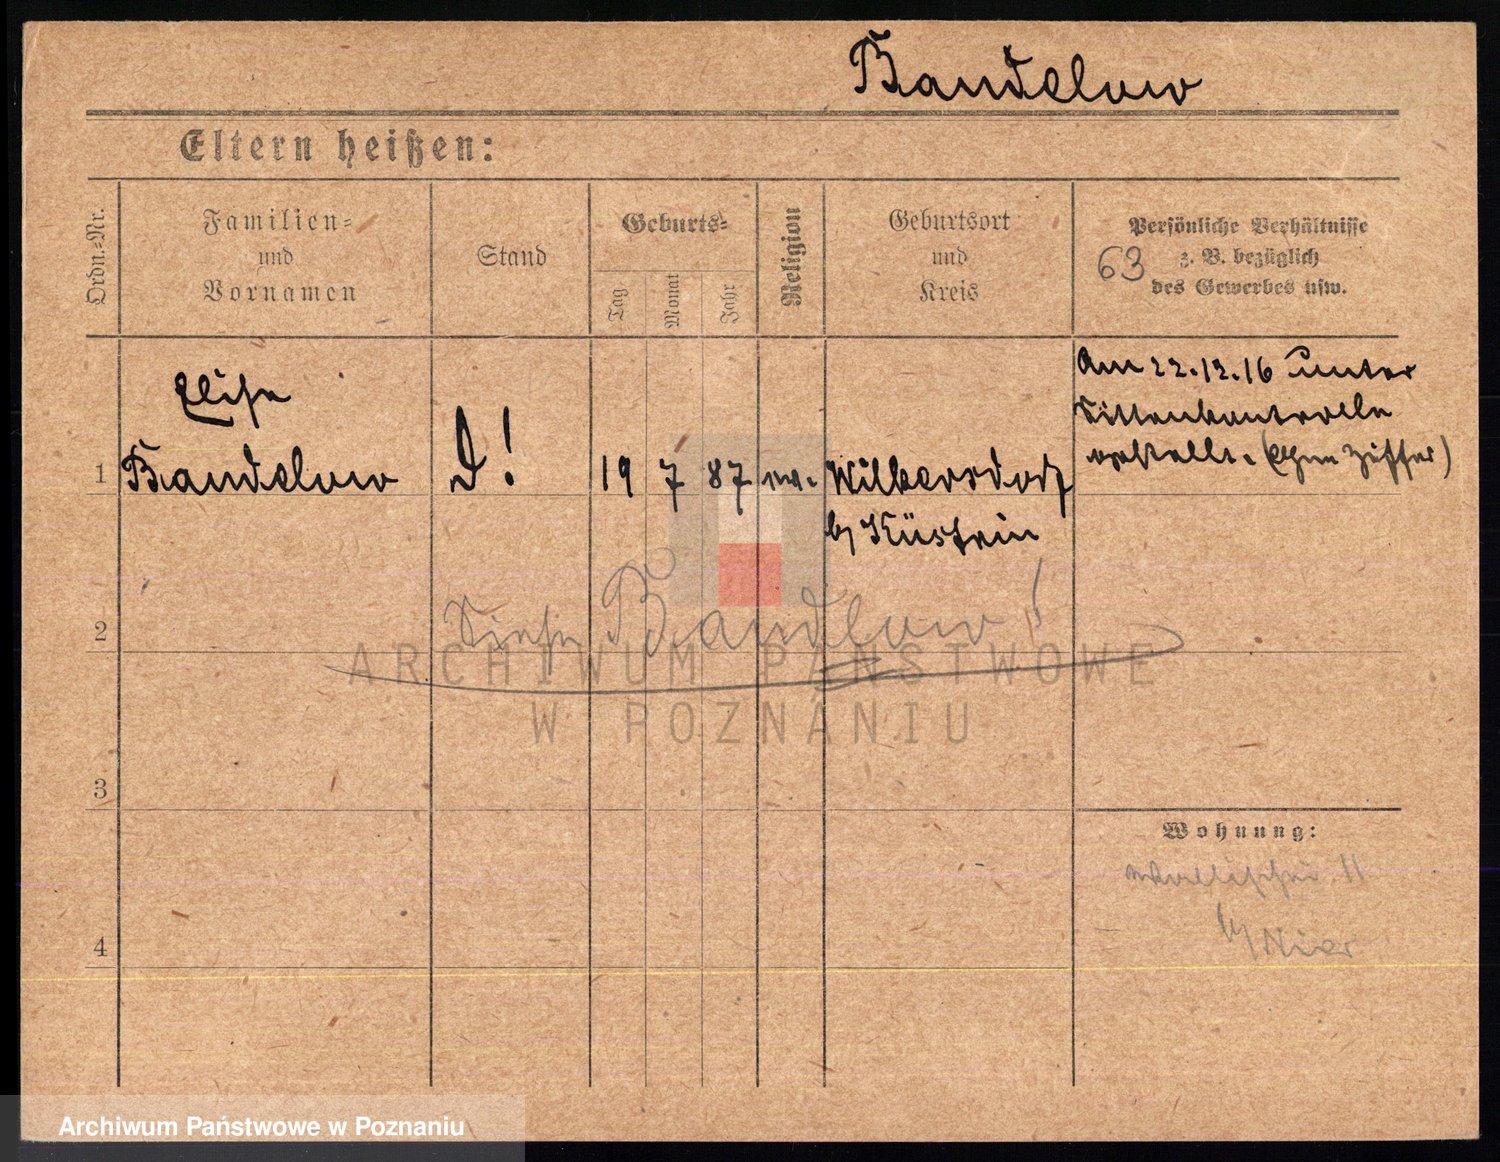 Bandelow
Eltern heißen:
Ordn.-Nr.
Familien-
und
Vornamen
Stand
Geburts-
Tag
Monat
Jahr
Religion
Geburtsort
und
Kreis
Persönliche Verhältnisse
z. B. bezüglich
des Gewerbes usw.
63
Elise
1 Bandelow D! 19 7 87 ev. Wilkersdorf
b/ Küstrin
Am 22.12.16 unter
Sittenkontrolle
gestellt. (Ohne Ziffer)
2
Siehe Bandlow!
3
Wohnung:
Wallischei 11
b/ Nier
4
ARCHIWUM PAŃSTWOWE
W POZNANIU
Archiwum Państwowe w Poznaniu